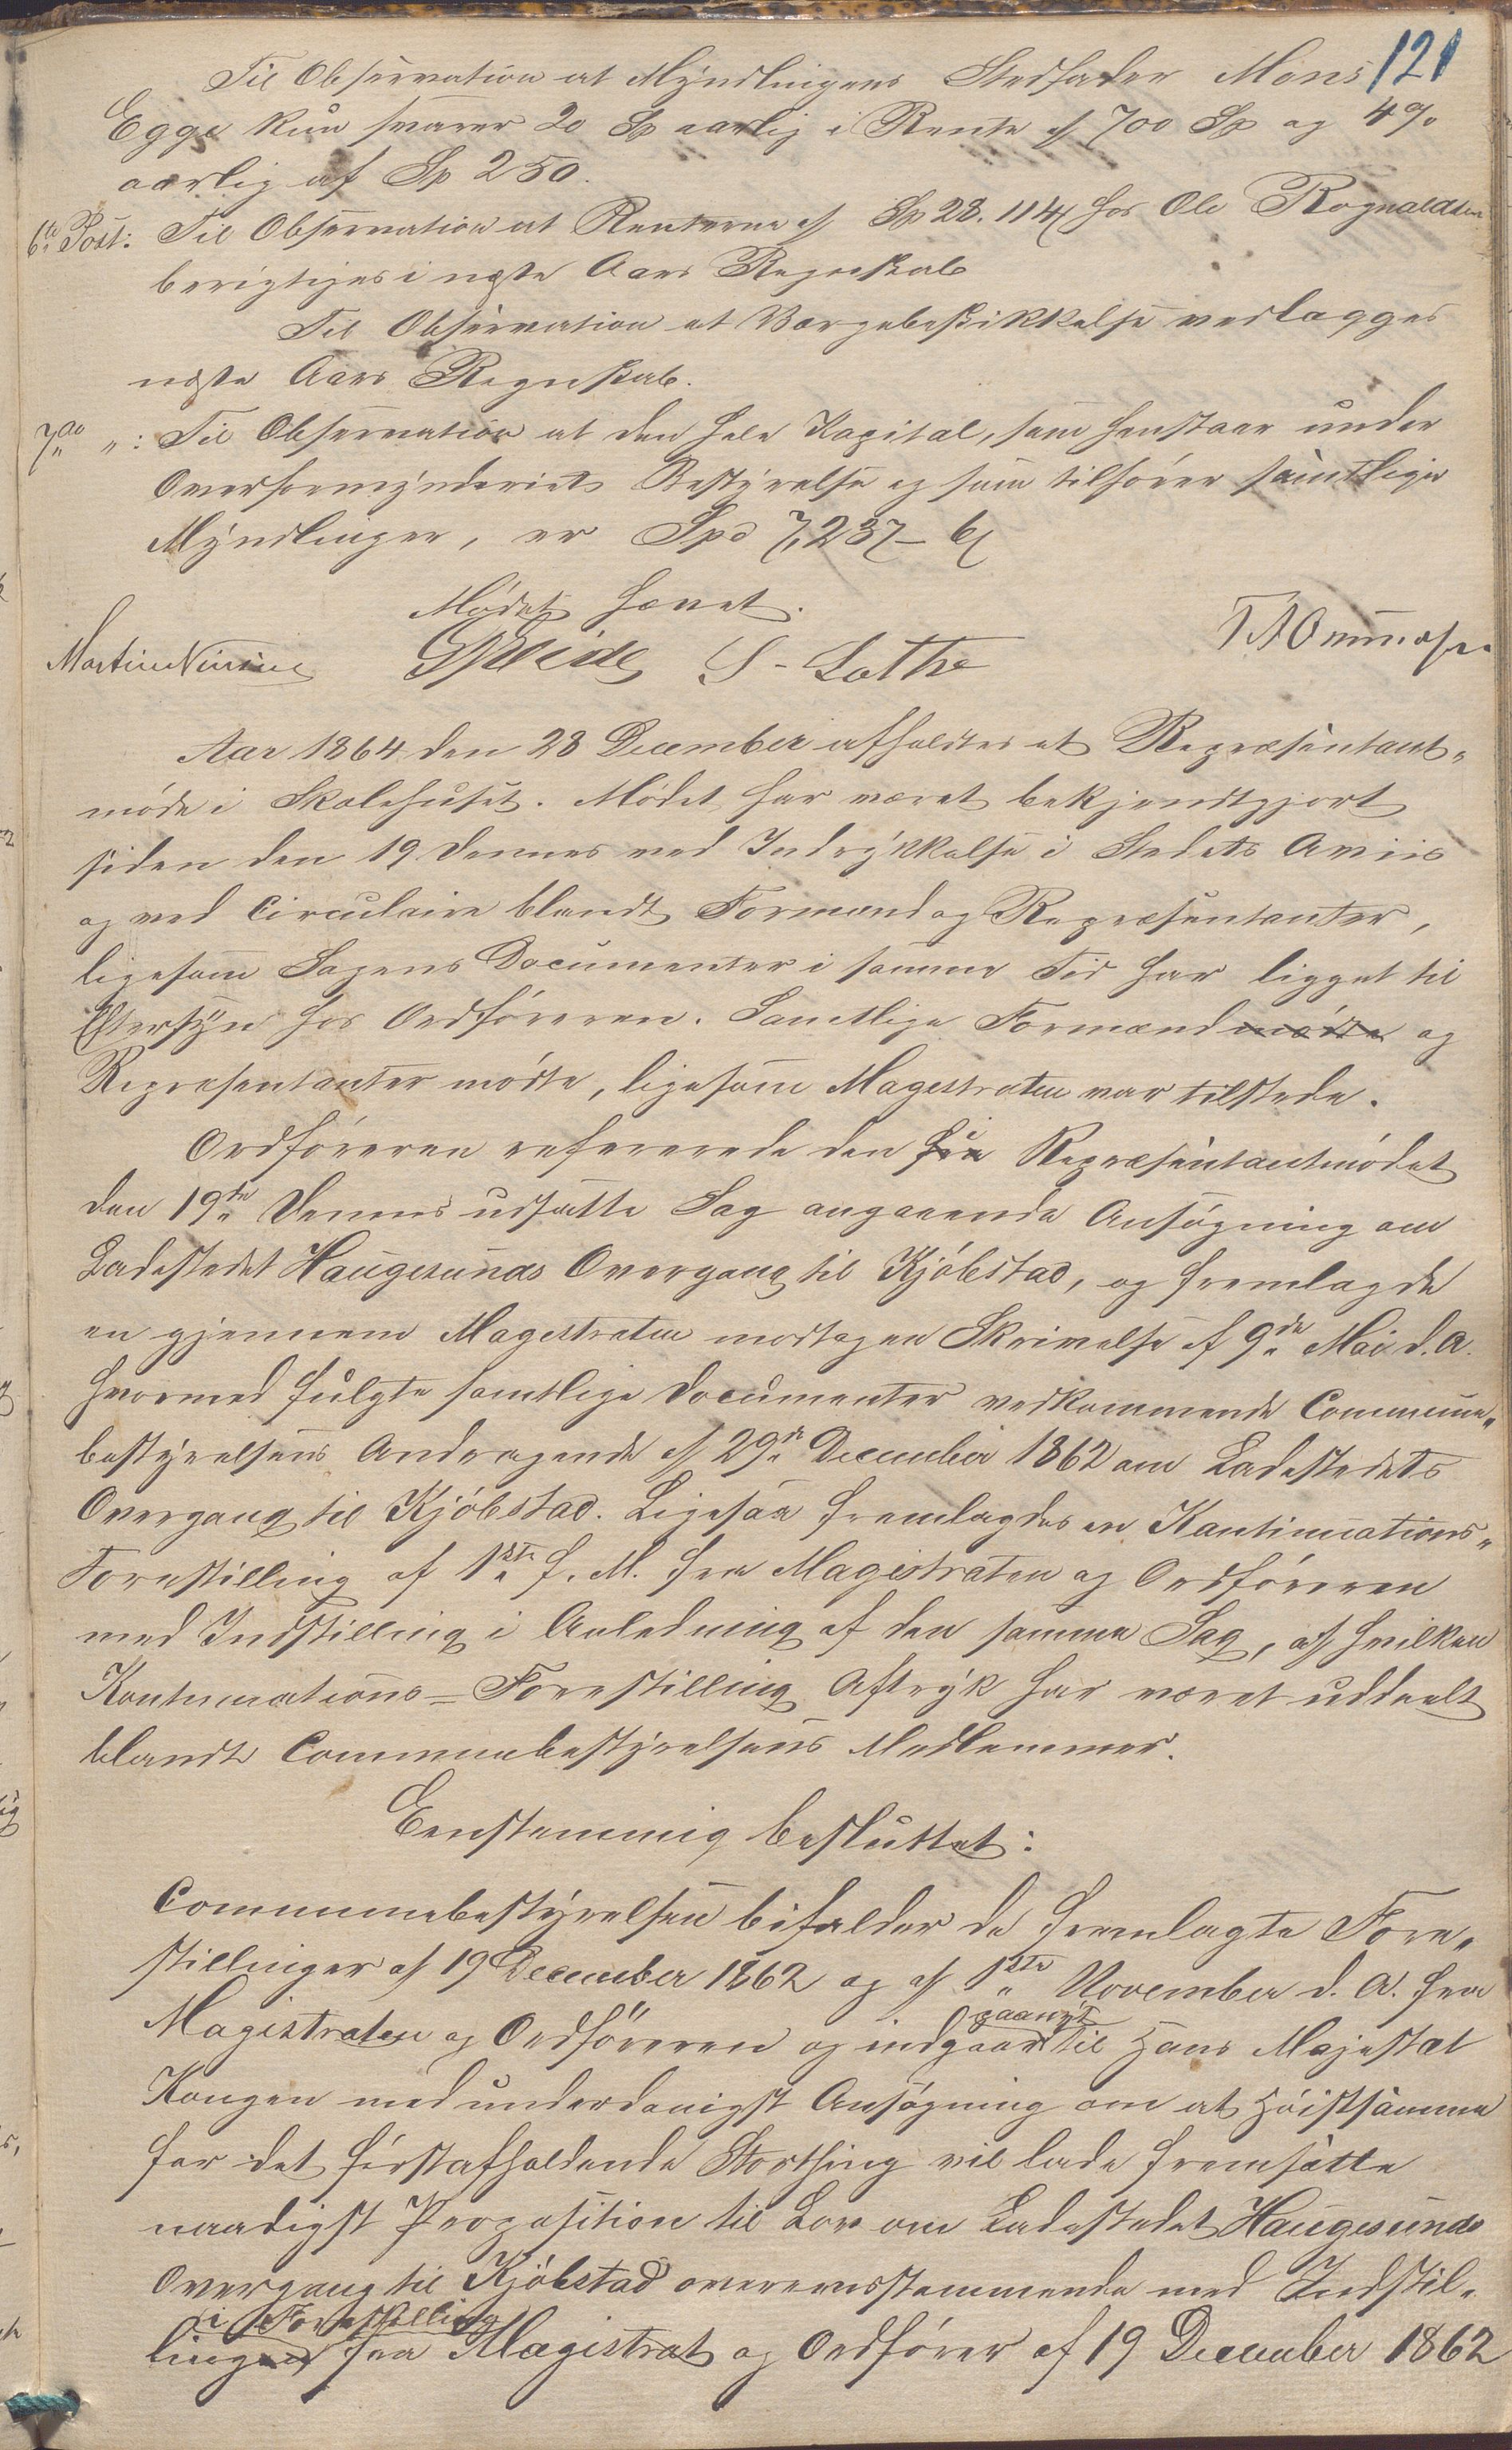 121
Til Observation at Myndlingens Stedfader Mons
Egge kun svarer 20 Sp aarlig i Rente af 700 Sp og 4%
aarlig af Sp 250.
6te Post: Til Observation at Renterne af Sp 28. 114 hos Ole Rognaldsen
berigtiges i næste Aars Regnskab
Til Observation at Værgebeskikkelse vedlægges
næste Aars Regnskab.
7de " : Til Observation at den hele Kapital, som henstaar under
Overformynderiets Bestyrelse og som tilhører samtlige
Myndlinger, er Spd 7,237 – 6
Mødet hævet.
S. Lothe
Aar 1864 den 28 December afholdtes et Repræsentant-
møde i Skolehuset. Mødet har været bekjendtgjort
siden den 19 dennes ved Indrykkelse i Stedets Aviis
og ved Circulaire blandt Formænd og Repræsentanter,
ligesom Sagens Documenter i samme Tid har ligget til
Eftersyn hos Ordføreren. Samtlige Formænd mødte og
Repræsentanter mødte, ligesom Magestraten var tilstede.
Ordføreren refererede den fra Repræsentantmødet
den 19de dennes udsatte Sag angaaende Ansøgning om
Ladestedet Haugesunds Overgang til Kjøbstad, og fremlagde
en gjennem Magestraten modtagen Skrivelse af 9de Mai d. A.
hvormed fulgte samtlige Documenter vedkommende Commune-
bestyrelsens Andragende af 29de December 1862 om Ladestedets
Overgang til Kjøbstad. Ligesaa fremlagdes en Kontinuations-
Forestilling af 1ste f. M. fra Magistraten og Ordføreren
med Indstilling i Anledning af den samme Sag, af hvilken
Kontinuations-Forestilling Aftryk har været uddeelt
blandt Communebestyrelsens Medlemmer.
Eenstemmig besluttet:
Communebestyrelsen bifalder de fremlagte Fore-
stillinger af 19 December 1862 og af 1ste November d. A. fra
Magistraten og Ordføreren og indgaar paanyt til Hans Majestæt
Kongen med underdanigst Ansøgning om at Høistsamme
for det førstafholdende Storthing vil lade fremsætte
naadigst Proposition til Lov om Ladestedet Haugesunds
Overgang til Kjøbstad overensstemmende med Indstil-
i Forestilling
lingen fra Magistrat og Ordfører af 19 December 1862